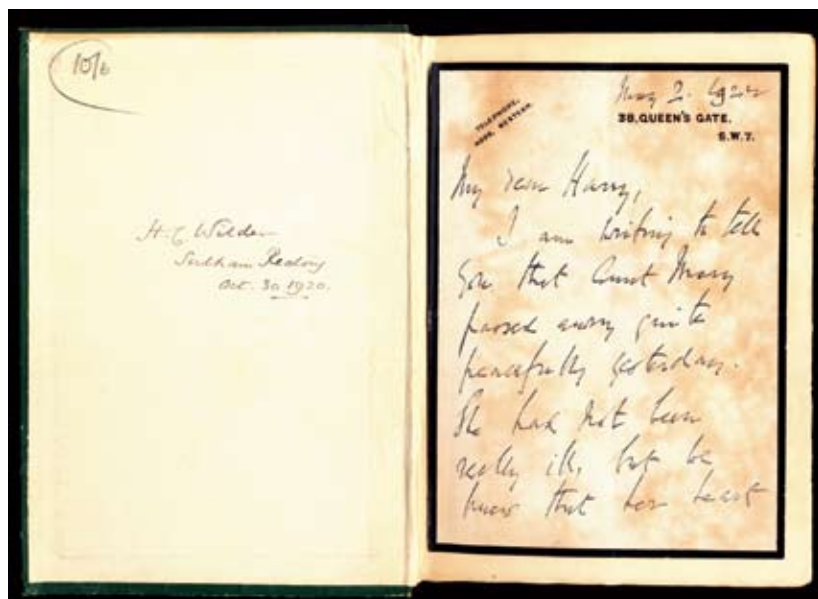 10/6
H. C. Wilder
Sulham Rectory
Oct. 30 1920.
May 2. 192
TELEPHONE,
WESTERN.
38, QUEEN'S GATE,
S.W.7.
My dear Harry,
I am writing to tell
you that Aunt Mary
passed away quite
peacefully yesterday.
She had not been
really ill, but we
knew that her heart